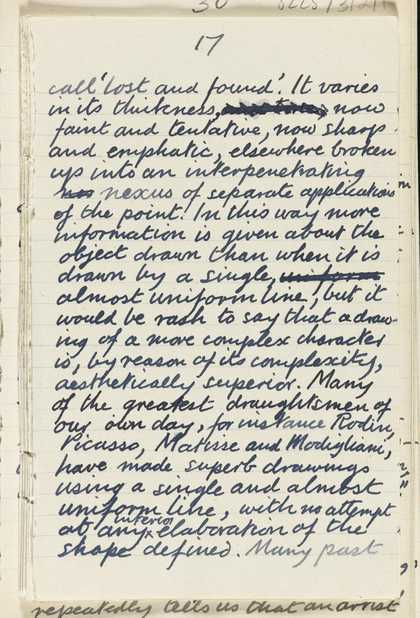 17
call 'lost and found'. It varies
in its thickness, now
faint and tentative, now sharp
and emphatic, elsewhere broken
up into an interpenetrating
nexus of separate applications
of the point. In this way more
information is given about the
object drawn than when it is
drawn by a single, uniform
almost uniform line, but it
would be rash to say that a draw-
ing of a more complex character
is, by reason of its complexity,
aesthetically superior. Many
of the greatest draughtsmen of
our own day, for instance Rodin,
Picasso, Matisse and Modigliani,
have made superb drawings
using a single and almost
uniform line, with no attempt
interior
at any elaboration of the
shape defined. Many past
repeatedly tells us that an artist